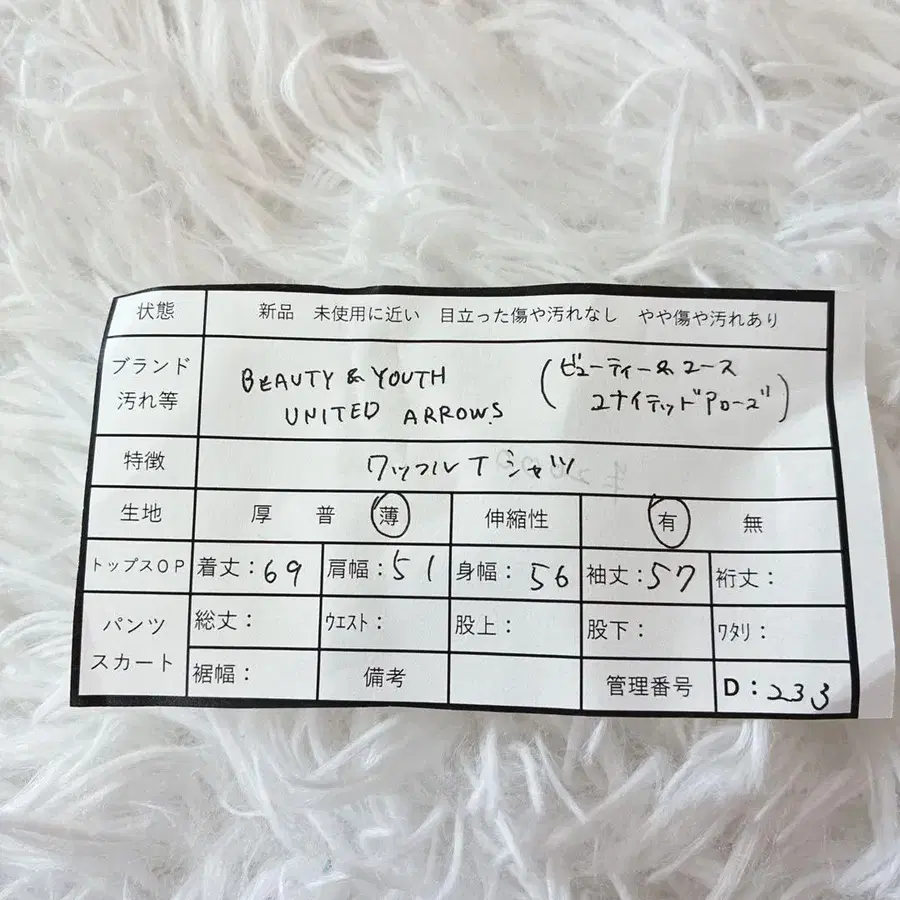 状態 新品 未使用に近い 目立った傷や汚れなし やや傷や汚れあり
ブランド
汚れ等
BEAUTY & YOUTH
UNITED ARROWS.
(ビューティー&ユース
ユナイテッドアローズ)
特徴 ワッフルTシャツ
生地 厚 普 薄 伸縮性 有 無
トップスOP 着丈:69 肩幅:51 身幅:56 袖丈:57 裄丈:
パンツ
スカート
総丈: ウエスト: 股上: 股下: ワタリ:
裾幅: 備考 管理番号 D:233